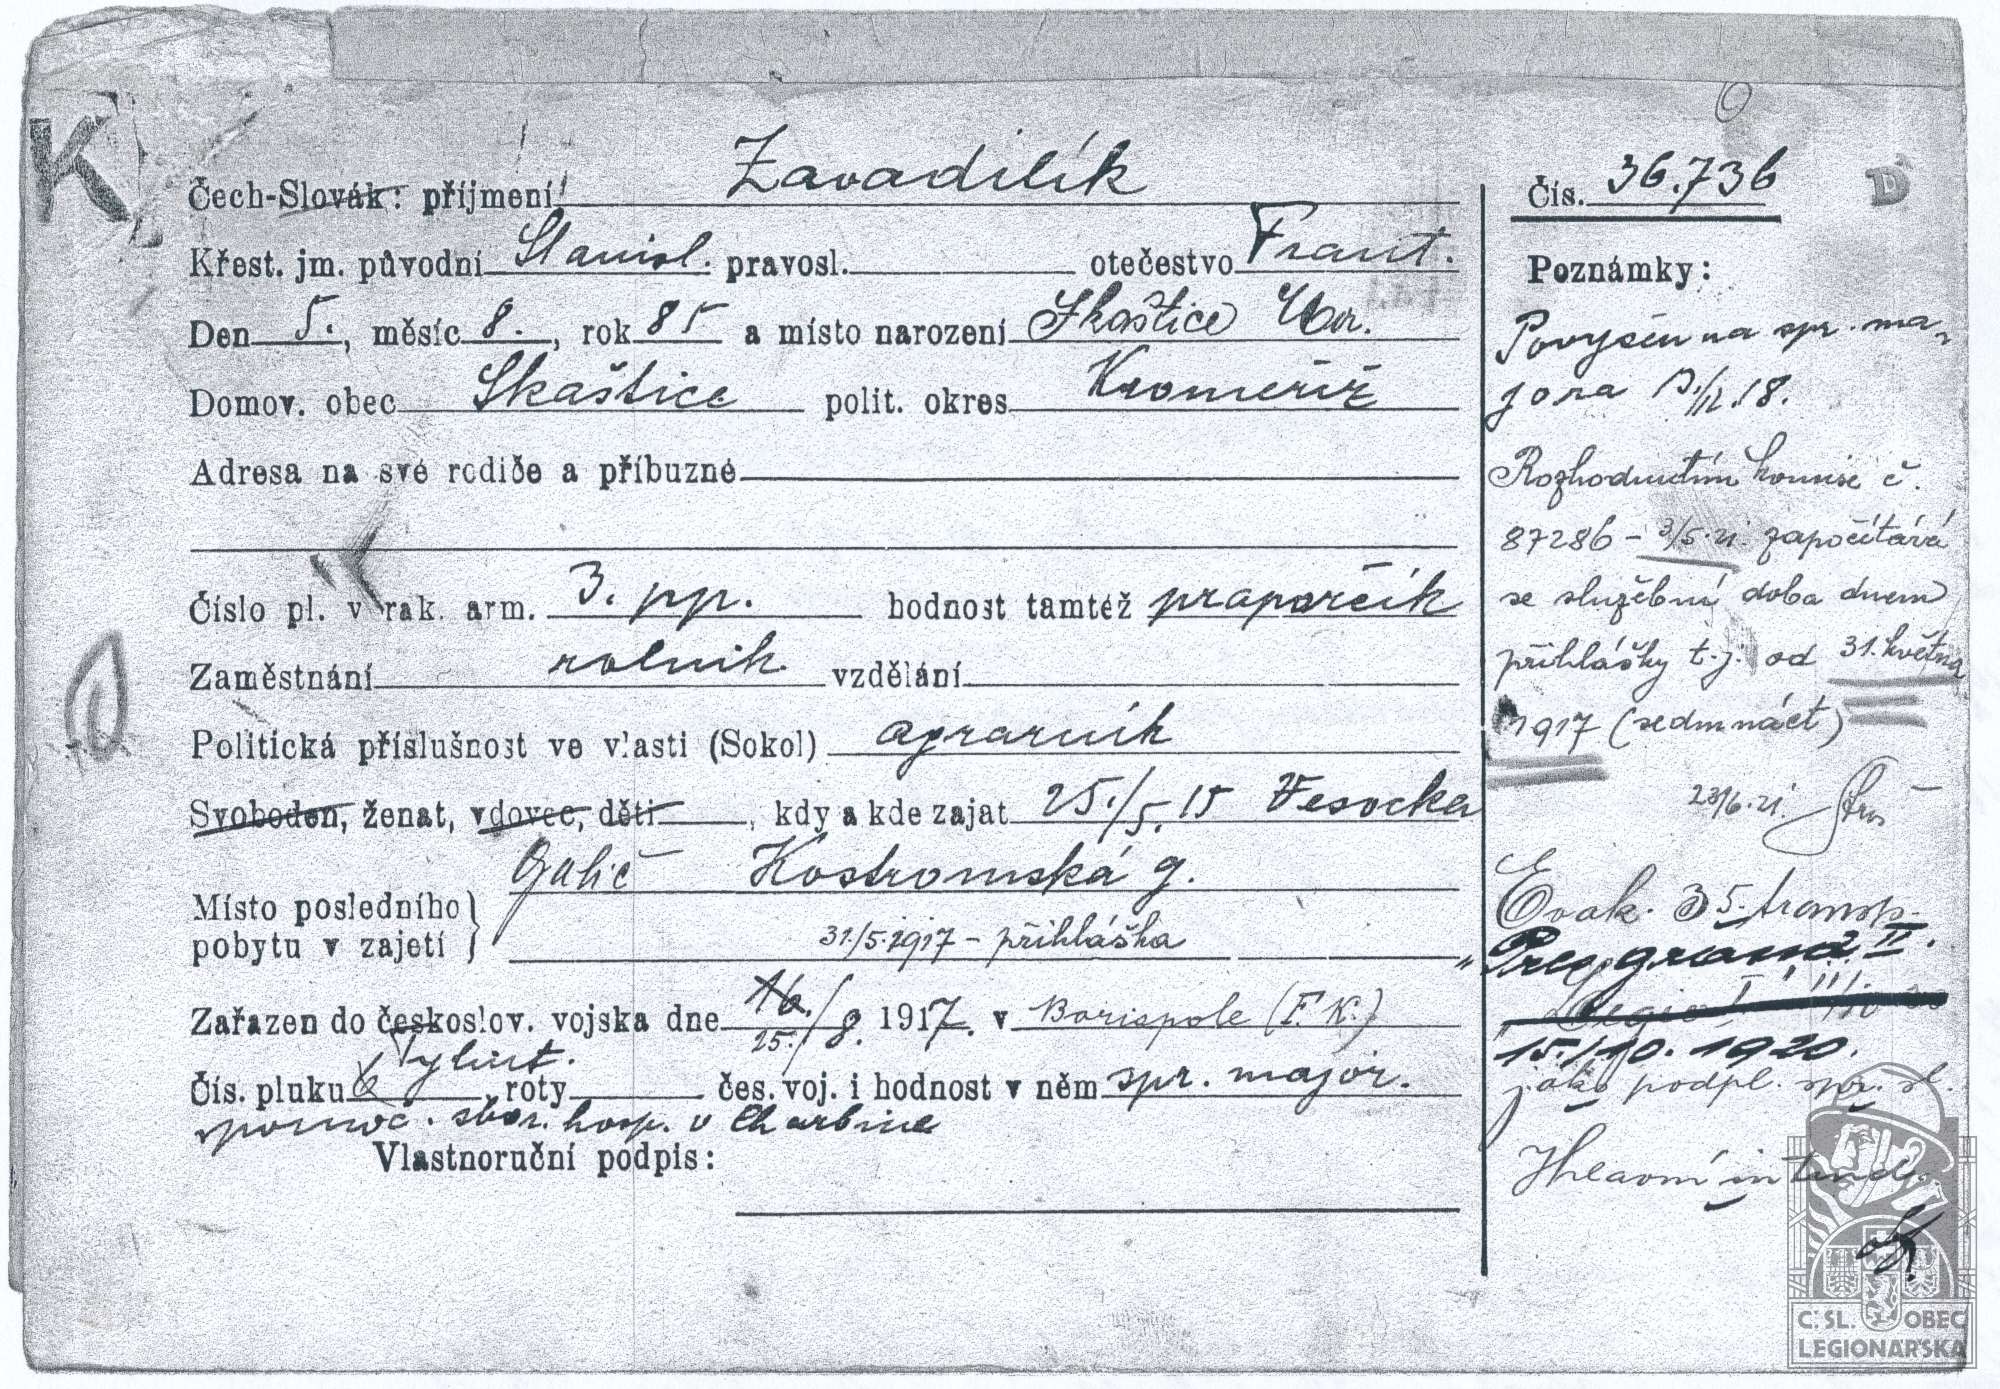 K
Čech-Slovák: příjmení Zavadilík
Křest. jm. původní Stanisl. pravosl. otečestvo Frant.
Den 5., měsíc 8., rok 85 a místo narození Skaštice Mor.
Domov. obec Skaštice polit. okres Kroměříž
Adresa na své rodiče a příbuzné
Číslo pl. v rak. arm. 3. pp. hodnost tamtéž praporčík
Zaměstnání rolník vzdělání
Politická příslušnost ve vlasti (Sokol) agrárník
Svoboden, ženat, vdovec, děti, kdy a kde zajat 25./5. 15 Vesocka
Místo posledního pobytu v zajetí } Galič Kostromská g.
31./5. 1917 - přihláška
Zařazen do českoslov. vojska dne 16. 25./8. 1917. v Borispole (F. K.)
Čís. pluku 6 roty čes. voj. i hodnost v něm spr. major.
pomoc. sbor. hosp. v Charbine
Vlastnoruční podpis:
Čís. 36.736
D
Poznámky:
Povýšen na spr. ma-
jora
Rozhodnutím komise č.
87286 - 3/5. 21. započítává
se služební doba dnem
přihlášky t. j. od 31. května
1917 (sedmnáct)
23/6. 21.
Evak. 35. transp.
II.
15./10. 1920.
jako podpl. spr. sl.
Hlavní intend.
Č. SL. OBEC
LEGIONÁŘSKÁ